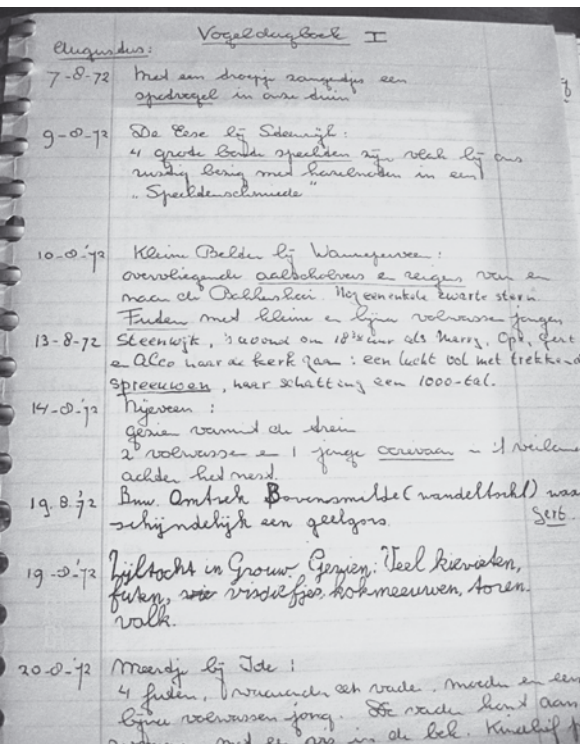 Vogeldagboek I
Augustus:
7-8-72 Met een droepje zangertjes een
spotvogel in onze tuin
9-8-72 De Eese bij Steenwijk:
4 grote bonte spechten zijn vlak bij ons
rustig bezig met hazelnoten in een
"Spechtenschmiede"
10-8-'72 Kleine Belder bij Wanneperveen:
overvliegende aalscholvers en reigers van en
naar de Bakkershoi. Nog een enkele zwarte stern
Futen met kleine en bijna volwassen jongen
13-8-72 Steenwijk, 's avond om 18 uur als Marry, Opk, Gert
en Alco naar de kerk gaan: een lucht vol met trekkende
spreeuwen, naar schatting een 1000-tal.
14-8-'72 Nijeveen:
gezien vanuit de trein
2 volwassen en 1 jonge ooievaar in 't weiland
achter het nest.
19.8.'72 Bnw. Omtrek Bovensmilde (wandeltocht) waar
schijndelijk een geelgors. Gert.
19-8-'72 Zijltocht in Grouw. Gezien: Veel kievieten,
futen, visdiefjes, kokmeeuwen, toren-
valk.
20-8-'72 Meertje bij Ide:
4 futen, waaronder een vader, moeder en een
bijna volwassen jong. De vader komt aan
met een vis in de bek. Kinderlijf